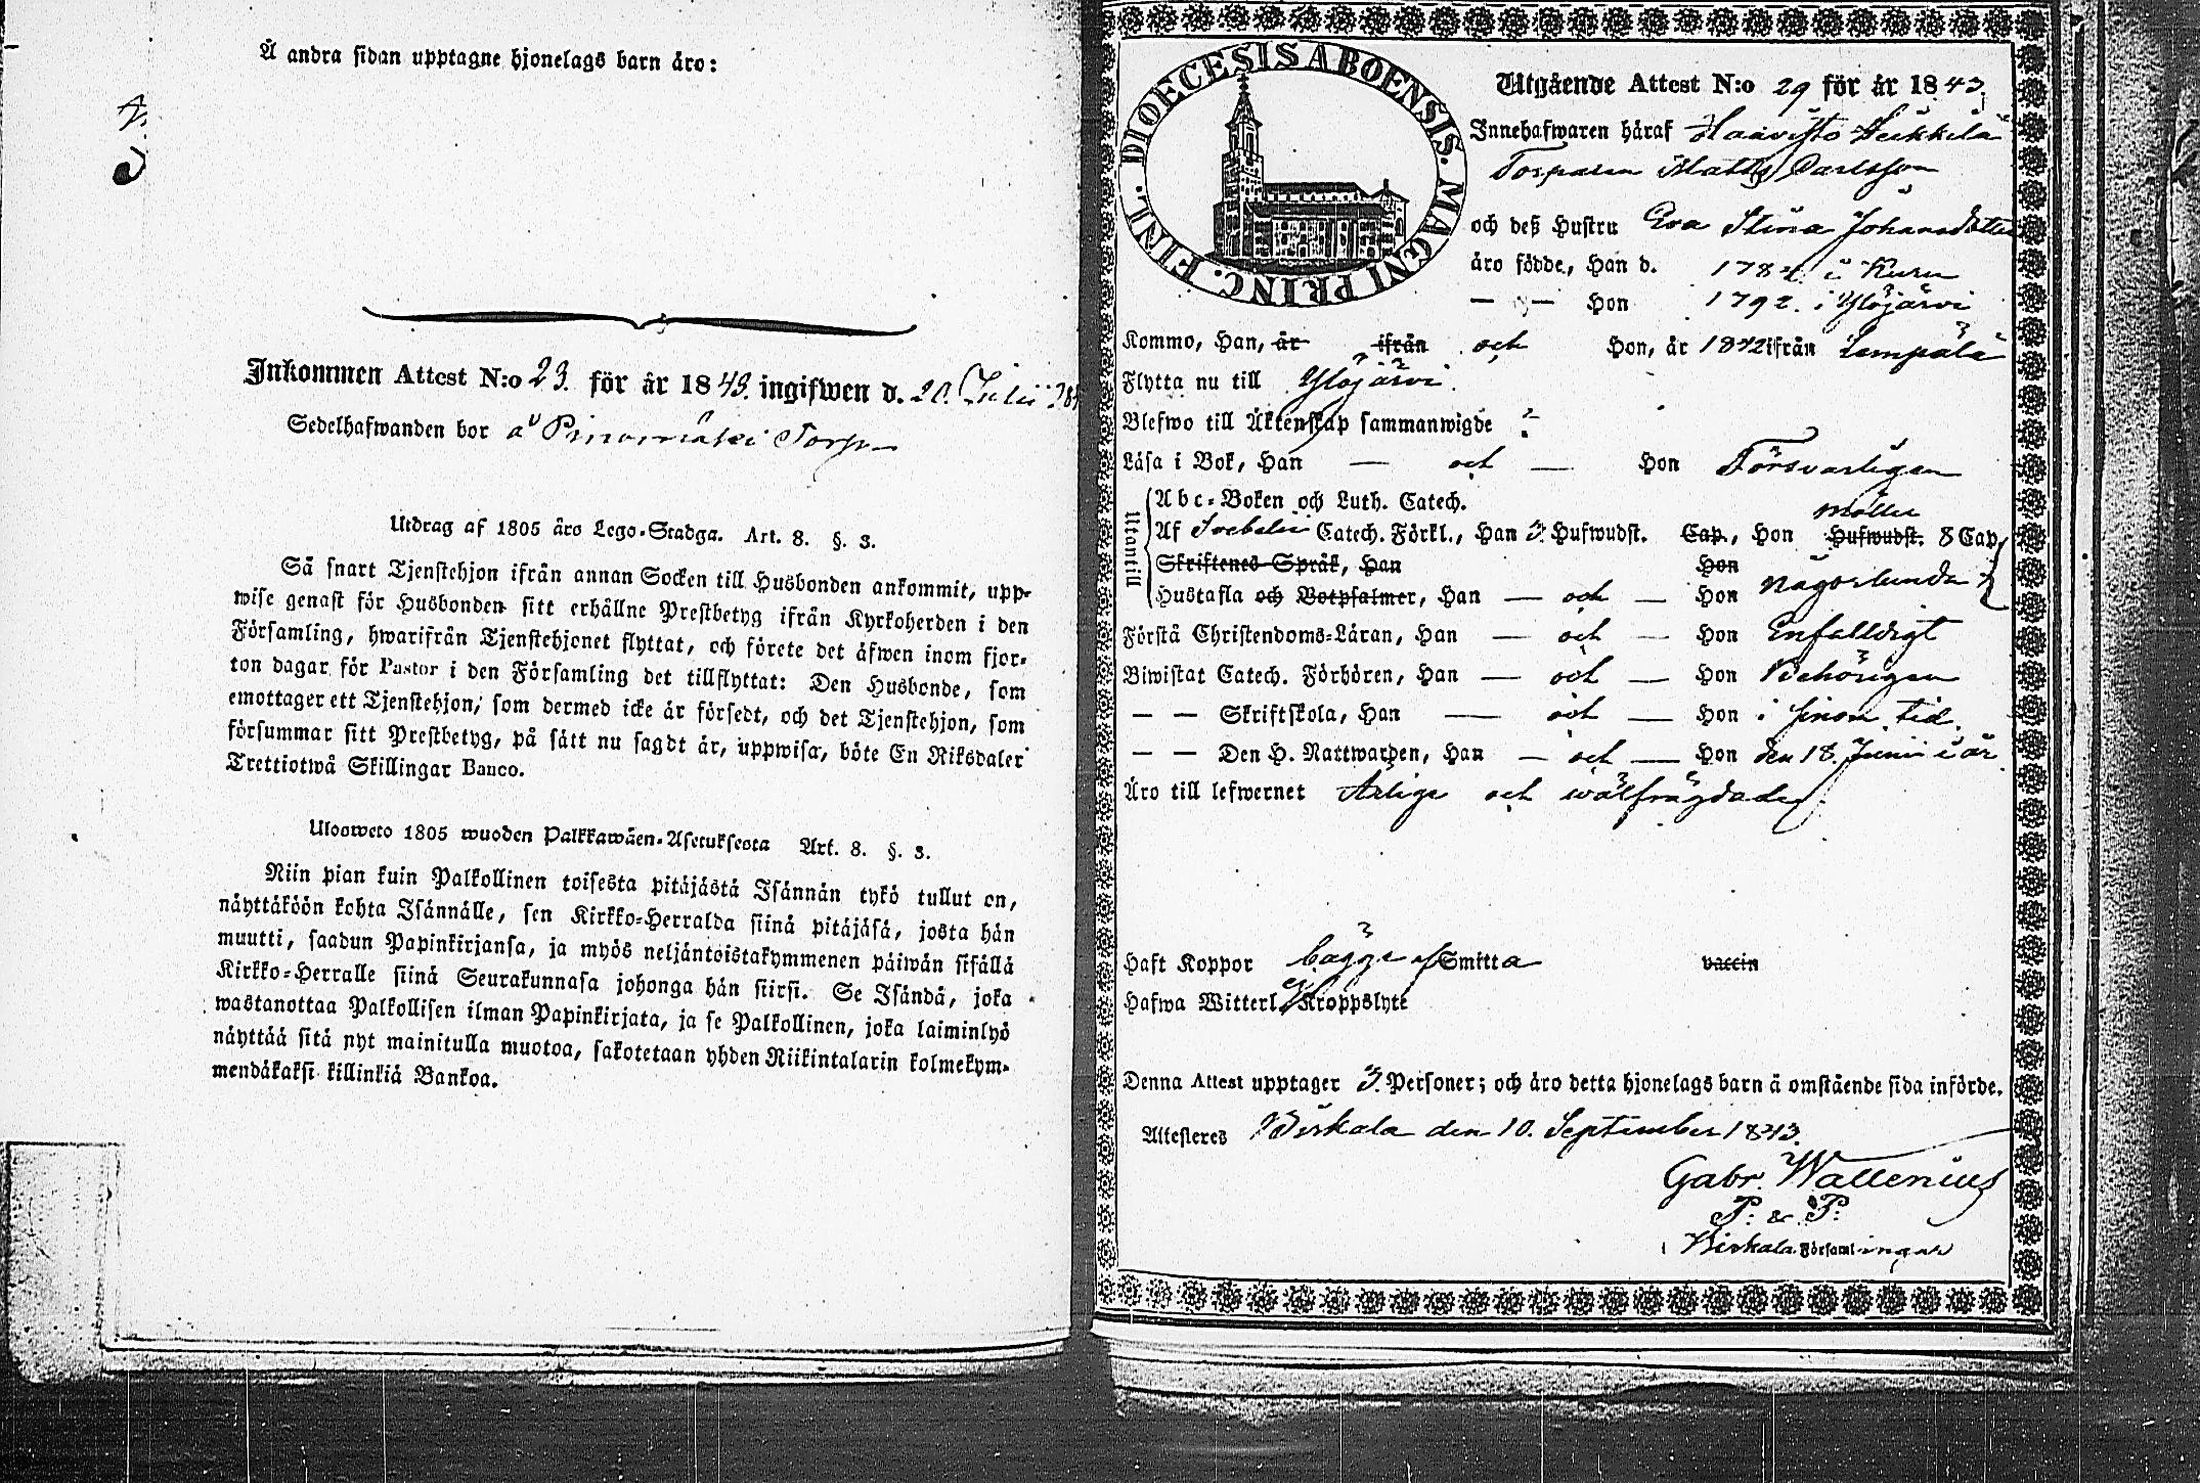 Å andra sidan upptagne hjonelags barn äro:
Inkommen Attest N:o 23. för år 1843. ingifwen d. 20. Julii
Sedelhafwanden bor å Torp
Utdrag af 1805 års Lego-Stadga. Art. 8. §. 3.
Så snart Tjenstehjon ifrån annan Socken till Husbonden ankommit, upp-
wise genast för Husbonden sitt erhållne Prestbetyg ifrån Kyrkoherden i den
Församling, hwarifrån Tjenstehjonet flyttat, och förete det äfwen inom fjor-
ton dagar för Pastor i den Församling det tillflyttat: Den Husbonde, som
emottager ett Tjenstehjon, som dermed icke är försedt, och det Tjenstehjon, som
försummar sitt Prestbetyg, på sätt nu sagdt är, uppwisa, böte En Riksdaler
Trettiotwå Skillingar Banco.
Ulosweto 1805 wuoden Palkkawäen-Asetuksesta Art. 8. §. 3.
Niin pian kuin Palkollinen toisesta pitäjästä Isännän tykö tullut on,
näyttäköön kohta Isännälle, sen Kirkko-Herralda siinä pitäjäsä, josta hän
muutti, saadun Papinkirjansa, ja myös neljäntoistakymmenen päiwän sisällä
Kirkko-Herralle siinä Seurakunnasa johonga hän siirsi. Se Isändä, joka
wastanottaa Palkollisen ilman Papinkirjata, ja se Palkollinen, joka laiminlyö
näyttää sitä nyt mainitulla muotoa, sakotetaan yhden Riikintalarin kolmekym-
mendäkaksi killinkiä Bankoa.
DIOECESIS ABOENSIS. MAGNI PRINC. FINL.
Utgående Attest N:o 29 för år 1843.
Innehafwaren häraf Haavisto Heikkilä
Torparen Matts Carlsson
och deß Hustru Eva Stina Johansdotter
äro födde, Han d. 1782. i Kuru
— — Hon 1792. i Ylöjärvi
Kommo, Han, år ifrån och Hon, år 1842 ifrån Lempälä
Flytta nu till Ylöjärvi.
Blefwo till Äktenskap sammanwigde ?
Läsa i Bok, Han — och — Hon Försvarligen
Utantill
Abc-Boken och Luth. Catech.
Af Svebelii Catech. Förkl., Han 3 Hufwudst. Cap., Hon Hufwudst. 8 Cap
Skriftenes Språk, Han Hon
Hustafla och Botpsalmer, Han — och — Hon någorlunda
Förstå Christendoms-Läran, Han — och — Hon Enfalldigt
Biwistat Catech. Förhören, Han — och — Hon Behörigen
— — Skriftskola, Han — och — Hon i sinom tid.
— — Den H. Nattwarden, Han — och — Hon den 18. Junii i år
Äro till lefwernet Ärlige och wälfrägdade.
Haft Koppor bägge af Smitta vaccin
Hafwa Witterl. ej Kroppslyte
Denna Attest upptager 3. Personer; och äro detta hjonelags barn å omstående sida införde.
Attesteres Birkala den 10. September 1843.
Gabr. Wallenius
P: & P:
i Birkala Församlingar